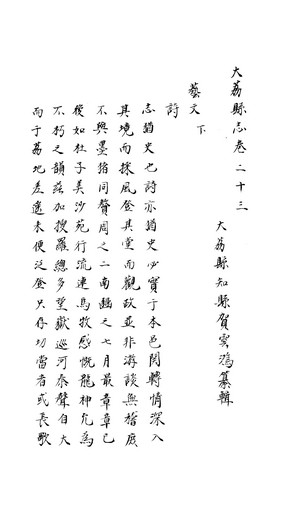 大荔縣志卷二十三
大荔縣知縣賀雲鴻纂輯
藝文下
詩
志猶史也詩亦猶史必實于本邑関轉情深入
其境而採風登其堂而觀政並非游談無稽庶
不與墨猪同贅周之二南豳之七月最章章已
後如杜子美沙苑行流連馬牧感慨龍神允為
不朽之韻茲加搜羅總多望嶽巡河泰聲自大
而于荔地差遙未便泛登只存切當者或長歌